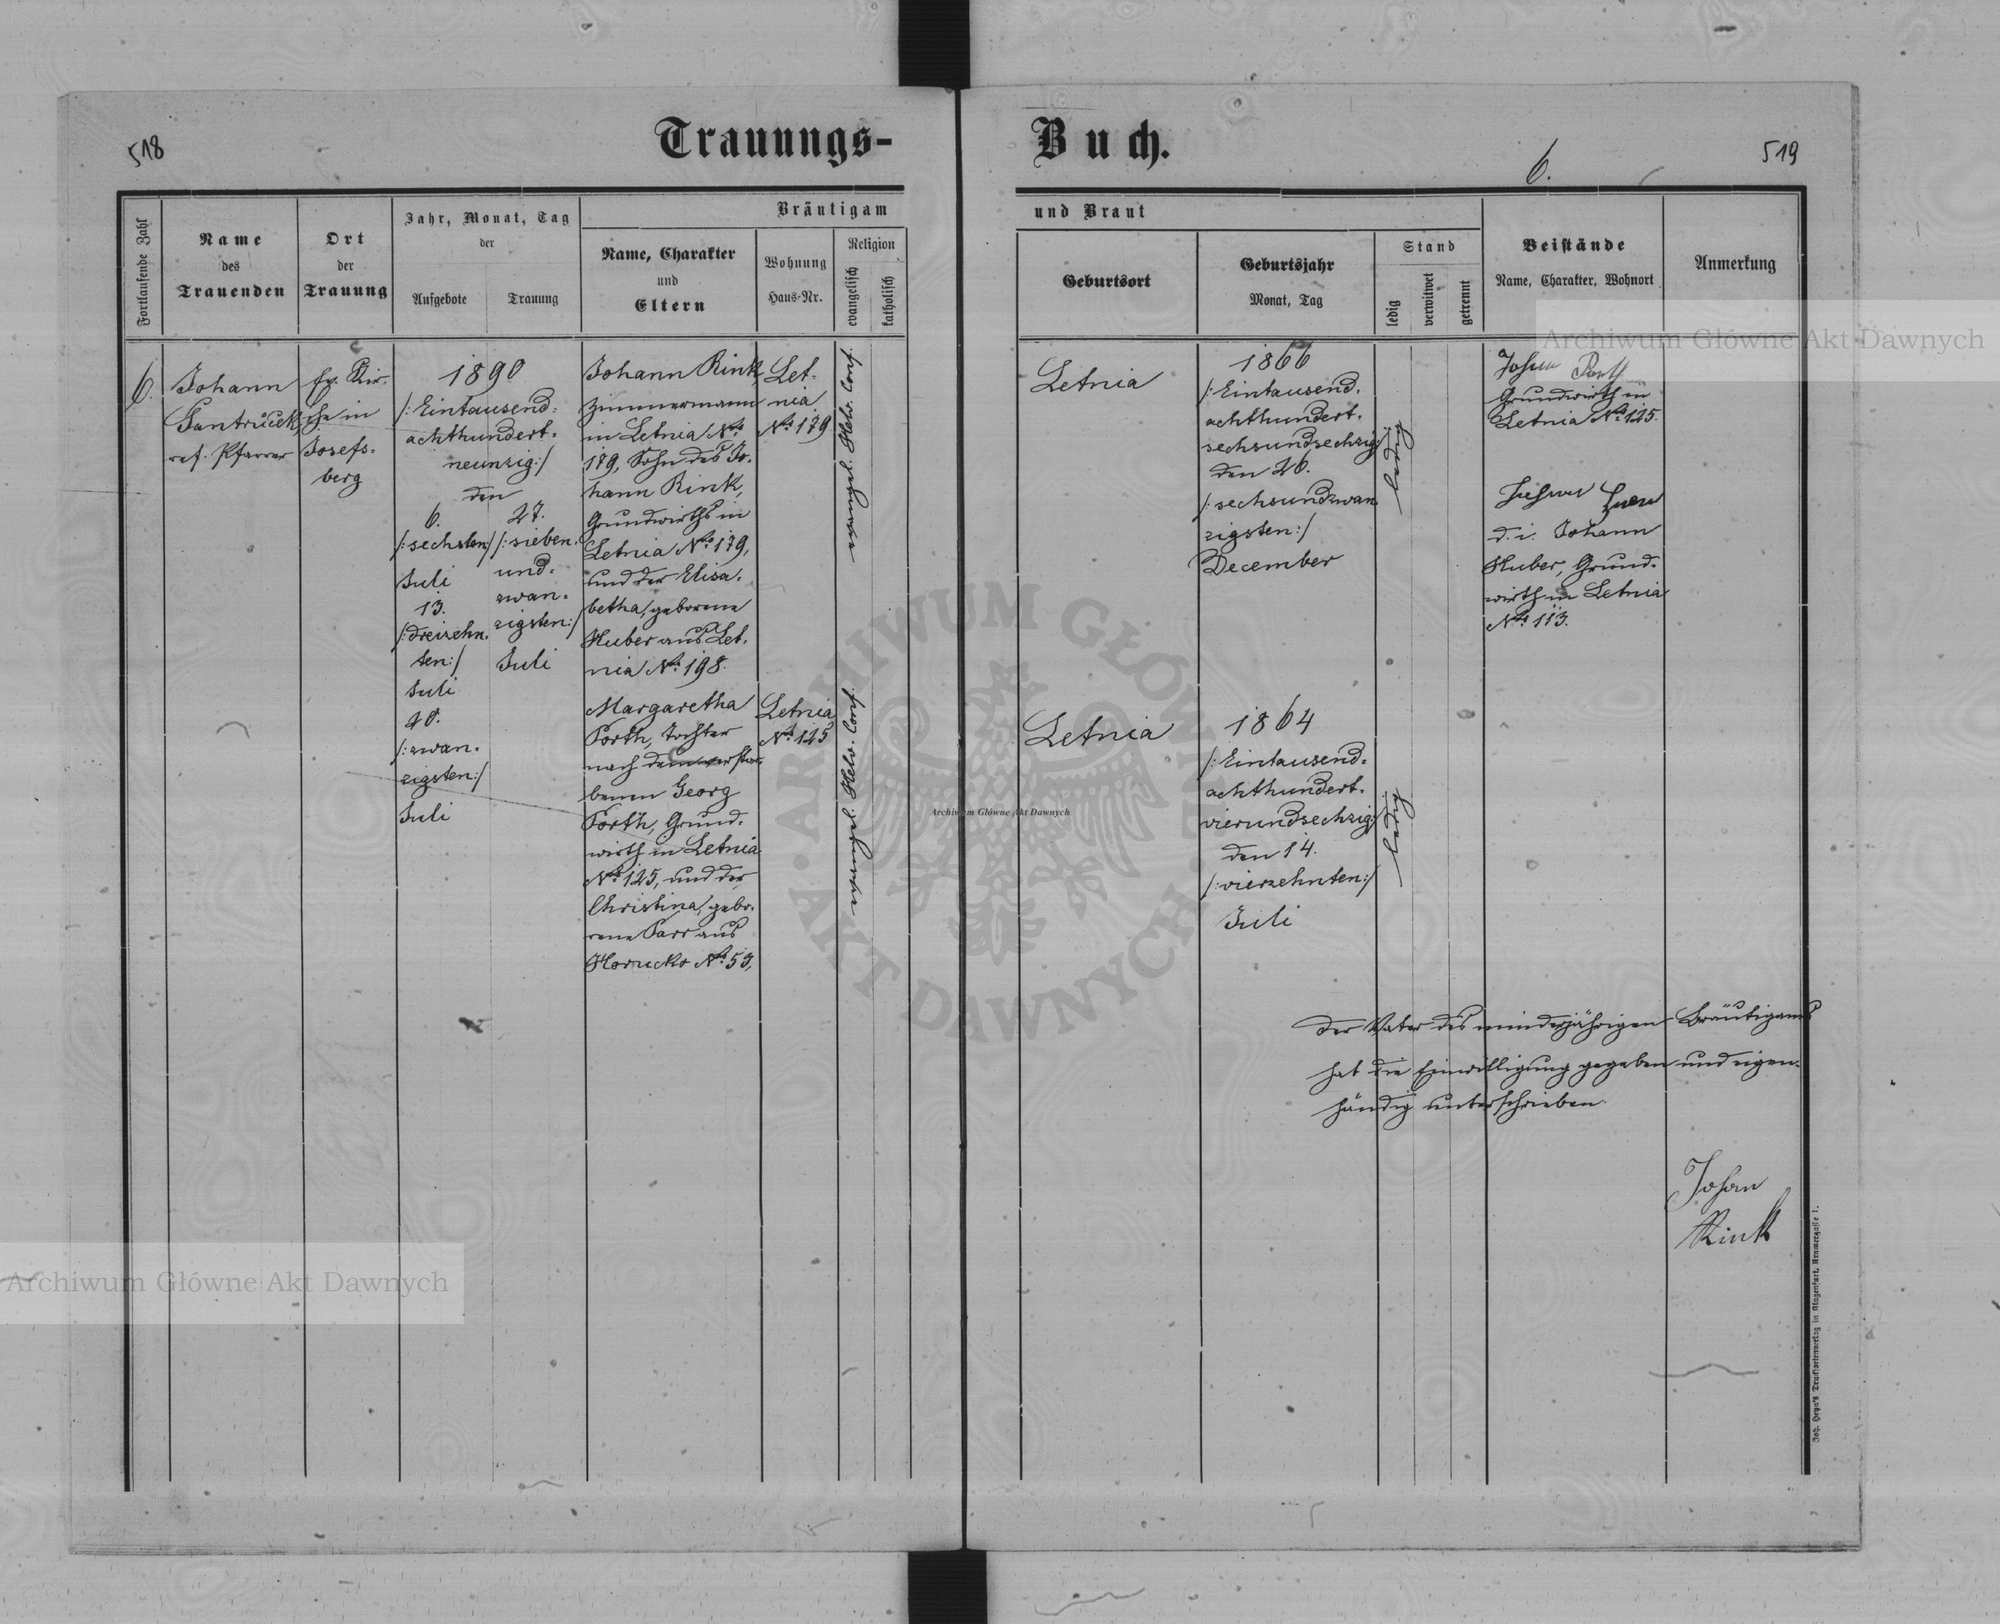 518
Trauungs-
Buch.
6.
519
Fortlaufende Zahl
Name
des
Trauenden
Ort
der
Trauung
Jahr, Monat, Tag
der
Aufgebote
Trauung
Bräutigam
Name, Charakter
und
Eltern
Wohnung
Haus-Nr.
Religion
evangelisch
katholisch
und Braut
Geburtsort
Geburtsjahr
Monat, Tag
Stand
ledig
verwitwet
getrennt
Beistände
Name, Charakter, Wohnort
Anmerkung
6.
Johann
Santrůček,
ref. Pfarrer
ev. Kir-
che in
Josefs-
berg
1890
/: Eintausend-
achthundert-
neunzig :/
den
6.
/: sechsten :/
Juli
13.
/: dreizehn-
ten :/
Juli
20.
/: zwan-
zigsten :/
Juli
27.
/: sieben-
und-
zwan-
zigsten :/
Juli
Johann Rink,
Zimmermann
in Letnia No.
179, Sohn des Jo-
hann Rink,
Grundwirths in
Letnia No. 179,
und der Elisa-
betha, geborene
Huber aus Let-
nia No. 198.
Let-
nia
No. 179
evangel. Helv. Conf.
Letnia
1866
/: Eintausend-
achthundert-
sechsundsechzig :/
den 26.
/: sechsundzwan-
zigsten :/
December
ledig
Johan Porth
Grundwirth in
Letnia No. 125.
d. i. Johann
Huber, Grund-
wirth in Letnia
No. 113.
Margaretha
Porth, Tochter
nach dem verstor-
benen Georg
Porth, Grund-
wirth in Letnia
No. 125, und der
Christina, gebo-
rene Parr aus
Horucko No. 53,
Letnia
No. 125
evangel. Helv. Conf.
Letnia
1864
/: Eintausend-
achthundert-
vierundsechzig :/
den 14.
/: vierzehnten :/
Juli
ledig
Der Vater des minderjährigen Bräutigams
hat die Einwilligung gegeben und eigen-
händig unterschrieben.
Johan
Rink
Joh. Heyn's Drucksortenverlag in Klagenfurt, Kramergasse 1.
Archiwum Główne Akt Dawnych
Archiwum Główne Akt Dawnych
Archiwum Główne Akt Dawnych
ARCHIWUM GŁÓWNE
AKT DAWNYCH